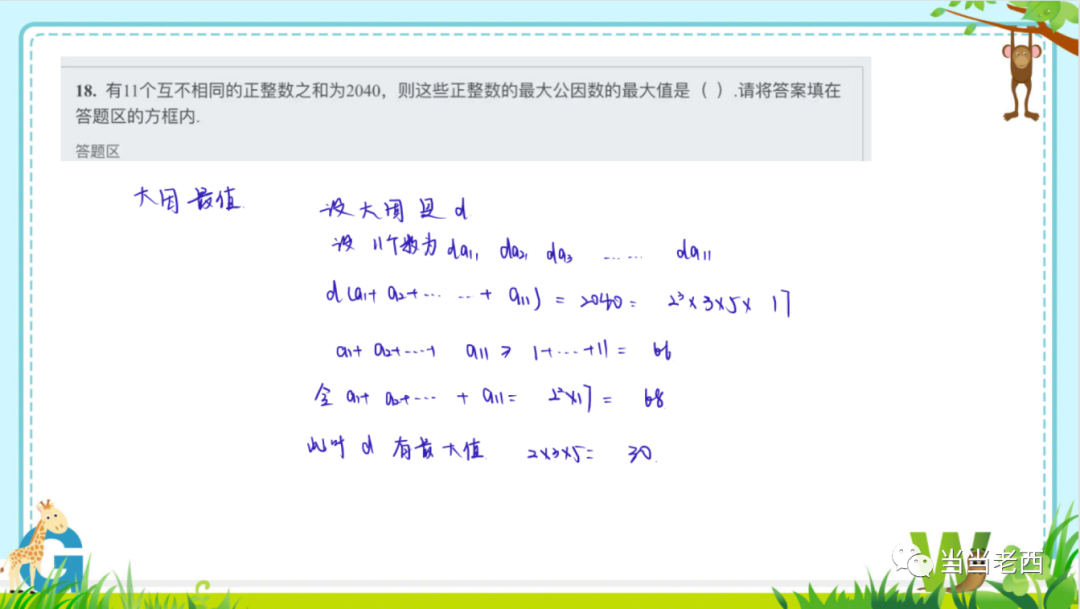 18. 有11个互不相同的正整数之和为2040，则这些正整数的最大公因数的最大值是（ ）.请将答案填在
答题区的方框内.
答题区
大因最值.
设大因是d
设 11个数为 da11, da2, da3 …… da11
d(a1+ a2+… …+ a11) = 2040 = 2³×3×5×17
a1+ a2+…+ a11 ≥ 1+…+11 = 66
令 a1+ a2+… + a11= 2²×17 = 68
此时 d 有最大值 2×3×5= 30.
G
W
当当老西